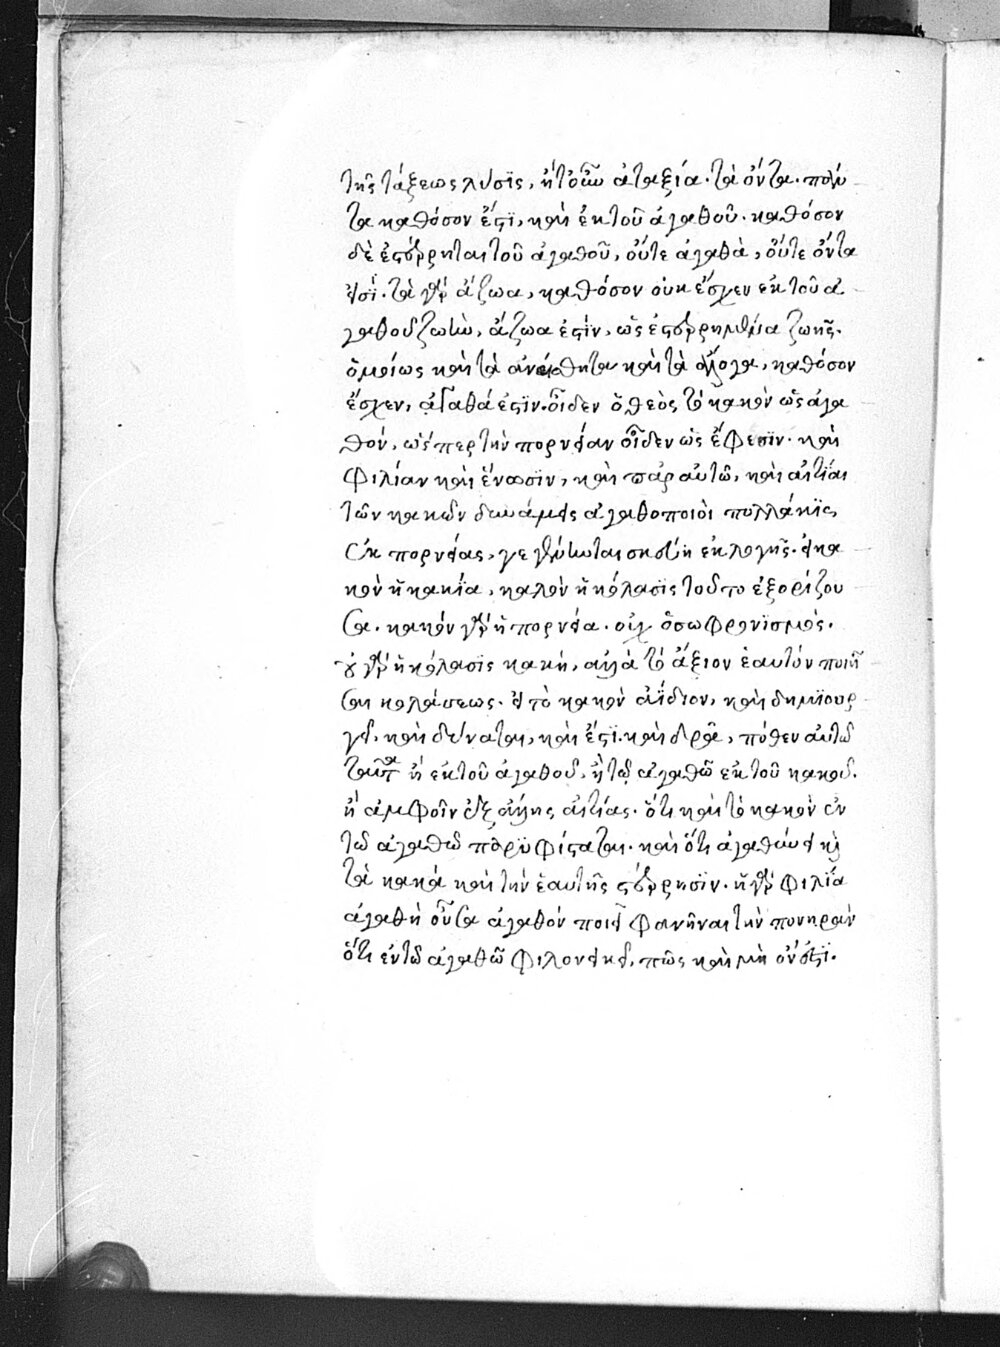 τῆς τάξεως λύσϊς, ἤτοῦν ἀταξία. τὰ ὄντα. πάν
τα καθόσον ἔστϊ, καὶ ἐκ τοῦ ἀγαθοῦ. καθόσον
δὲ ἐστέρρηται τοῦ ἀγαθοῦ, οὔτε ἀγαθὰ, οὔτε ὄντα
εἰσΐ. τὰ γὰρ ἄζωα, καθόσον οὐκ ἔσχεν ἐκ τοῦ ἀ
γαθοῦ ζωὴν, ἄζωα ἐστὶν, ὡς ἐστερρημένα ζωῆς.
ὁμοίως καὶ τὰ ἀναίσθητα καὶ τὰ ἄλογα, καθόσον
ἔσχεν, ἀγαθά ἐστϊν. οἶδεν ὁ θεὸς τὸ κακὸν ὡς ἀγα
θόν, ὥσπερ τὴν πορνείαν οἶδεν ὡς ἔφεσϊν. καὶ
φιλίαν καὶ ἕνωσϊν, καὶ παρ αὐτῶ, καὶ αἰτίαι
τῶν κακῶν δυνάμεις ἀγαθοποιοὶ πολλάκϊς,
ἐκ πορνείας, γεγέννηται σκεύη ἐκλογῆς. εἰ κα
κὸν ἡ κακΐα, καλὸν ἡ κόλασϊς τοῦτο ἐξορίζου
σα. κακόν γὰρ ἡ πορνεία. οὐχ ὁ σωφρονϊσμός.
οὐ γὰρ ἡ κόλασϊς κακή, ἀλλὰ τὸ ἄξιον ἑαυτόν ποιῆ
σαι κολάσεως. εἰ τὸ κακὸν ἀΐδιον, καὶ δημϊουρ
γεῖ. καὶ δύναται, καὶ ἔστϊ. καὶ δρᾶ, πόθεν αὐτῶ
ταῦτα ἢ ἐκ τοῦ ἀγαθοῦ, ἢ τῶ ἀγαθῶ ἐκ τοῦ κακοῦ.
ἢ ἀμφοῖν ἐξ ἄλλης αἰτίας. ὅτι καὶ τὸ κακὸν ἐν
τῶ ἀγαθῶ παρϋφίσταται. καὶ ὅτι ἀγαθύνει καὶ
τὰ κακά καὶ τὴν ἑαυτῆς στέρρησϊν. ἡ γὰρ φιλΐα
ἀγαθὴ οὖσα ἀγαθόν ποιεῖ φανῆναι τὴν πονηρὰν
ὅτι ἐν τῶ ἀγαθῶ φιλονεικεῖ, πῶς καὶ μὴ ὄν ἐστϊ.